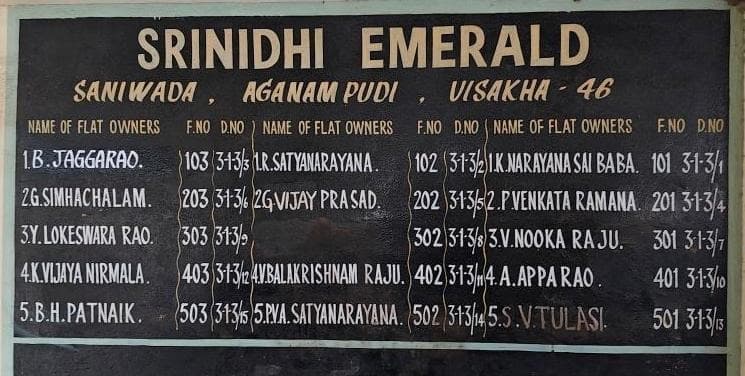 SRINIDHI EMERALD
SANIWADA , AGANAMPUDI , VISAKHA - 46
NAME OF FLAT OWNERS F.NO D.NO NAME OF FLAT OWNERS F.NO D.NO NAME OF FLAT OWNERS F.NO D.NO
1.B.JAGGARAO. 103 3-1-3/3 1.R.SATYANARAYANA. 102 3-1-3/2 1.K.NARAYANA SAI BABA. 101 3-1-3/1
2.G.SIMHACHALAM. 203 3-1-3/6 2.G.VIJAY PRASAD. 202 3-1-3/5 2.P.VENKATA RAMANA. 201 3-1-3/4
3.Y.LOKESWARA RAO. 303 3-1-3/9 302 3-1-3/8 3.V.NOOKA RAJU. 301 3-1-3/7
4.K.VIJAYA NIRMALA. 403 3-1-3/12 4.V.BALAKRISHNAM RAJU. 402 3-1-3/11 4.A.APPARAO. 401 3-1-3/10
5.B.H.PATNAIK. 503 3-1-3/15 5.P.V.A.SATYANARAYANA. 502 3-1-3/14 5.S.V.TULASI. 501 3-1-3/13